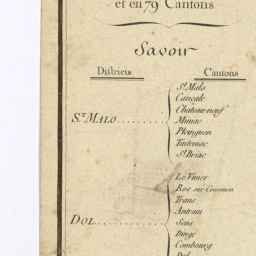 et en 79 Cantons
Savoir
Districts Cantons
St Malo
Cancale
Chateauneuf
St. MALO
Miniac
Pleugueu
Tinteniac
St Briac
Le Vivier
Roz sur Couesnon
Trans
Antrain
DOL
Sens
Bazoge
Combourg
Dol